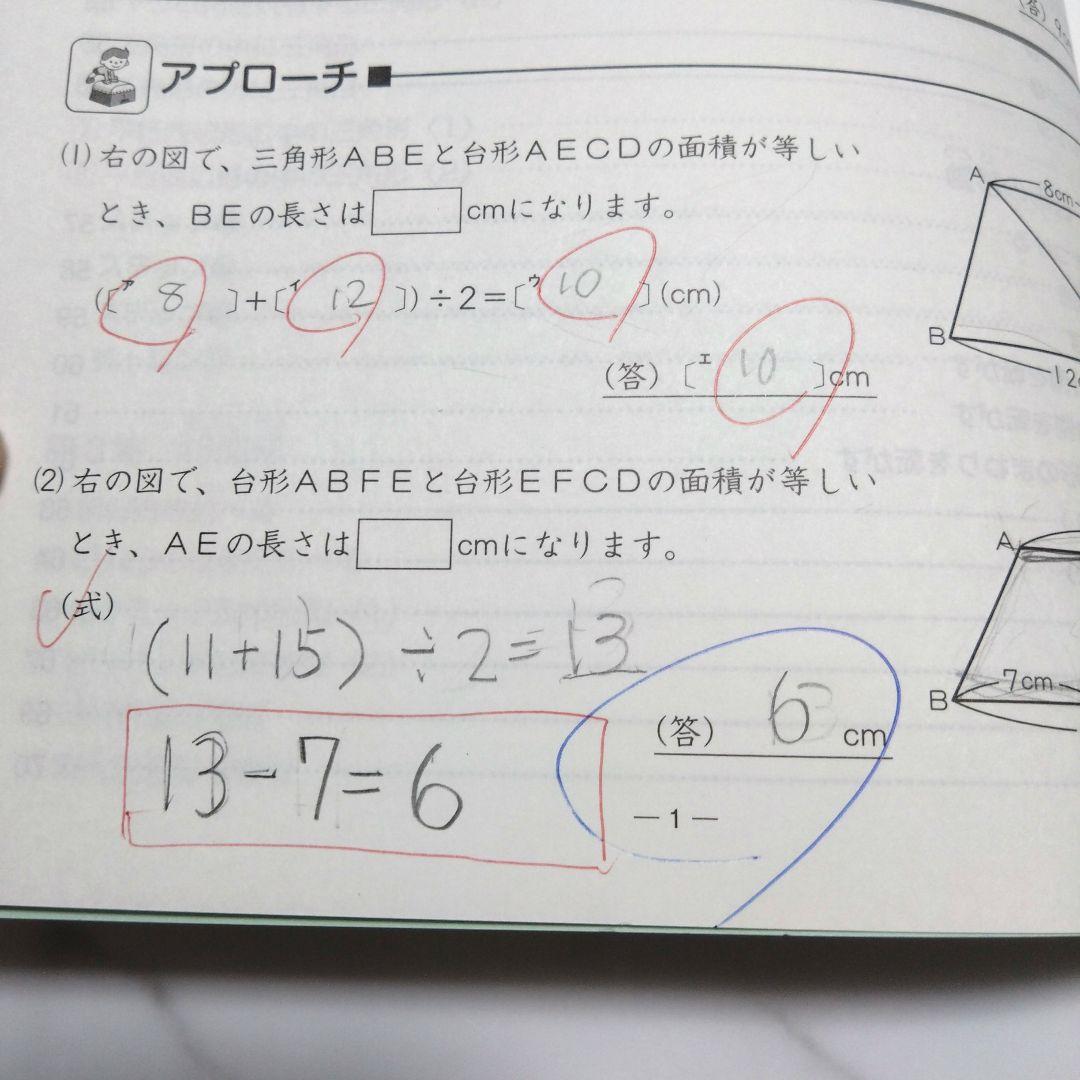 (答) 9
アプローチ■
(1) 右の図で、三角形ABEと台形AECDの面積が等しい
とき、BEの長さは□cmになります。
([ア 8 ]+[イ 12 ])÷2=[ウ 10 ](cm)
(答) [エ 10 ]cm
A 8cm
B 12c
(2) 右の図で、台形ABFEと台形EFCDの面積が等しい
とき、AEの長さは□cmになります。
(式)
(11+15)÷2=13
13-7=6
(答) 6 cm
A
B 7cm
—1—